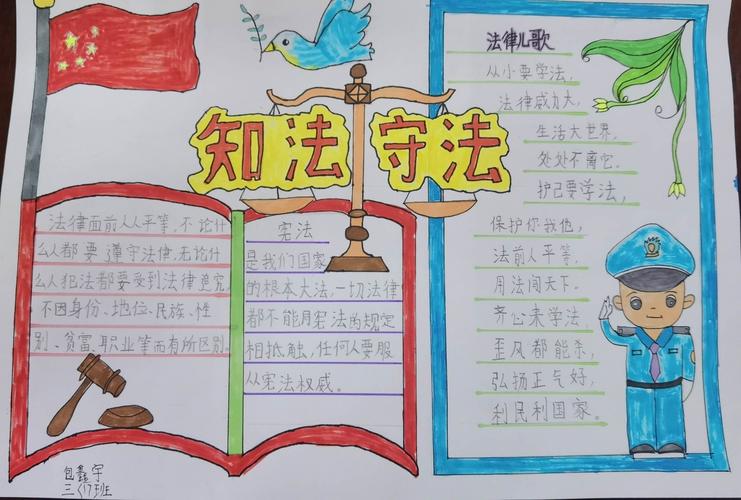 知法守法
法律面前人人平等,不论什
么人都要遵守法律,无论什
么人犯法都要受到法律追究,
不因身份、地位、民族、性
别、贫富、职业等而有所区别。
宪法
是我们国家
的根本大法,一切法律
都不能用宪法的规定
相抵触,任何人要服
从宪法权威。
法律儿歌
从小要学法,
法律威力大,
生活大世界,
处处不离它。
护己要学法,
保护你我他,
法前人平等,
用法闯天下。
齐心来学法,
歪风都能杀,
弘扬正气好,
利民利国家。
包鑫宇
三〈17〉班